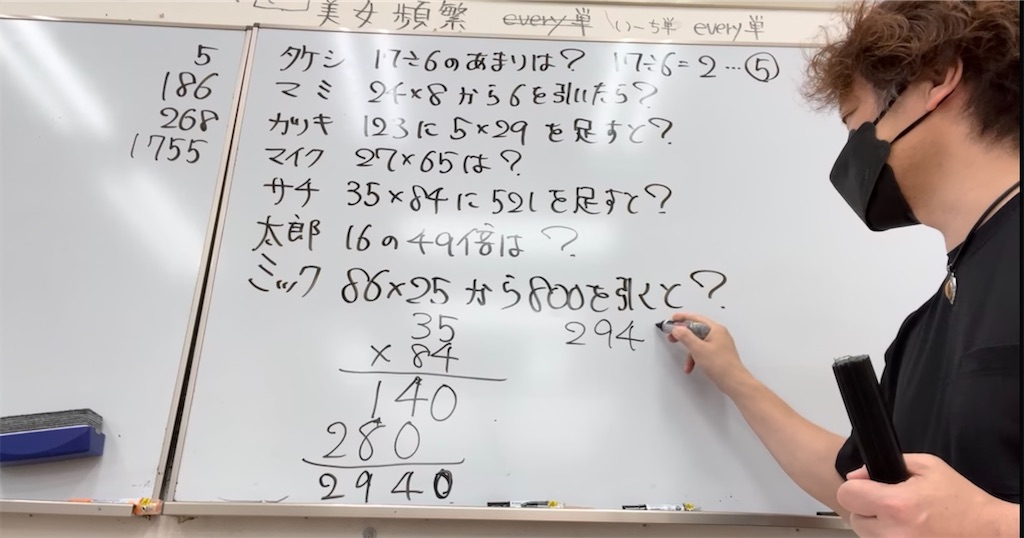 美女頻繁 every単 いーち単 every単
5
186
268
1755
タケシ 17÷6のあまりは? 17÷6=2…⑤
マミ 24×8から6を引いたら?
ガッキ 123に5×29を足すと?
マイク 27×65は?
サチ 35×84に521を足すと?
太郎 16の49倍は?
ミック 86×25から800を引くと?
35
×84
140
280
2940
294